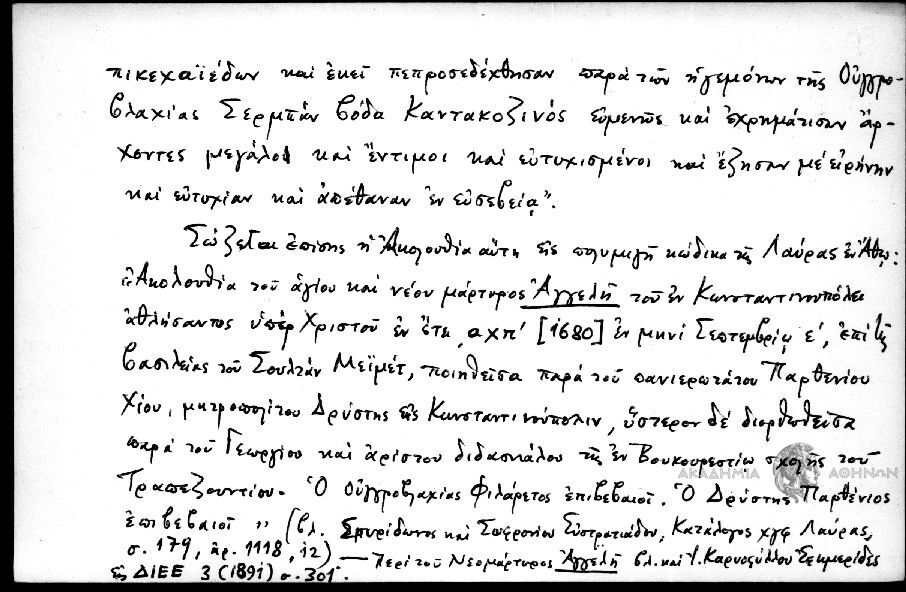 πικεχαϊέδων καὶ ἐκεῖ πεπροσεδέχθησαν παρὰ τῶν ἡγεμόνων τῆς Οὑγγρο-
βλαχίας Σερμπὰν βόδα Καντακοζινὸς εὐμενῶς καὶ ἐχρημάτισαν ἄρ-
χοντες μεγάλοι καὶ ἔντιμοι καὶ εὐτυχισμένοι καὶ ἔζησαν μὲ εἰρήνην
καὶ εὐτυχίαν καὶ ἀπέθαναν ἐν εὐσεβείᾳ".
Σώζεται ἐπίσης ἡ Ἀκολουθία αὕτη εἰς πολυμιγῆ κώδικα τῆς Λαύρας ἐν Ἄθῳ:
"Ἀκολουθία τοῦ ἁγίου καὶ νέου μάρτυρος Ἀγγελῆ τοῦ ἐν Κωνσταντινουπόλει
ἀθλήσαντος ὑπὲρ Χριστοῦ ἐν ἔτει ͵αχπ' [1680] ἐν μηνὶ Σεπτεμβρίῳ ε', ἐπὶ τῆς
βασιλείας τοῦ Σουλτὰν Μεϊμέτ, ποιηθεῖσα παρὰ τοῦ πανιερωτάτου Παρθενίου
Χίου, μητροπολίτου Δρύστης εἰς Κωνσταντινούπολιν, ὕστερον δὲ διορθωθεῖσα
παρὰ τοῦ Γεωργίου καὶ ἀρίστου διδασκάλου τῆς ἐν Βουκουρεστίῳ σχολῆς τοῦ
Τραπεζουντίου. Ὁ Οὑγγροβλαχίας Φιλάρετος ἐπιβεβαιοῖ. Ὁ Δρύστης Παρθένιος
ἐπιβεβαιοῖ" (βλ. Σπυρίδωνος καὶ Σωφρονίου Εὐστρατιάδου, Κατάλογος χγφ Λαύρας,
σ. 179, ἀρ. 1118, 12) — Περὶ τοῦ Νεομάρτυρος Ἀγγελῆ βλ. καὶ Ἰ. Καρυοφύλλου Ἐφημερίδες
εἰς ΔΙΕΕ 3 (1891) σ. 301.
ΑΚΑΔΗΜΙΑ ΑΘΗΝΩΝ